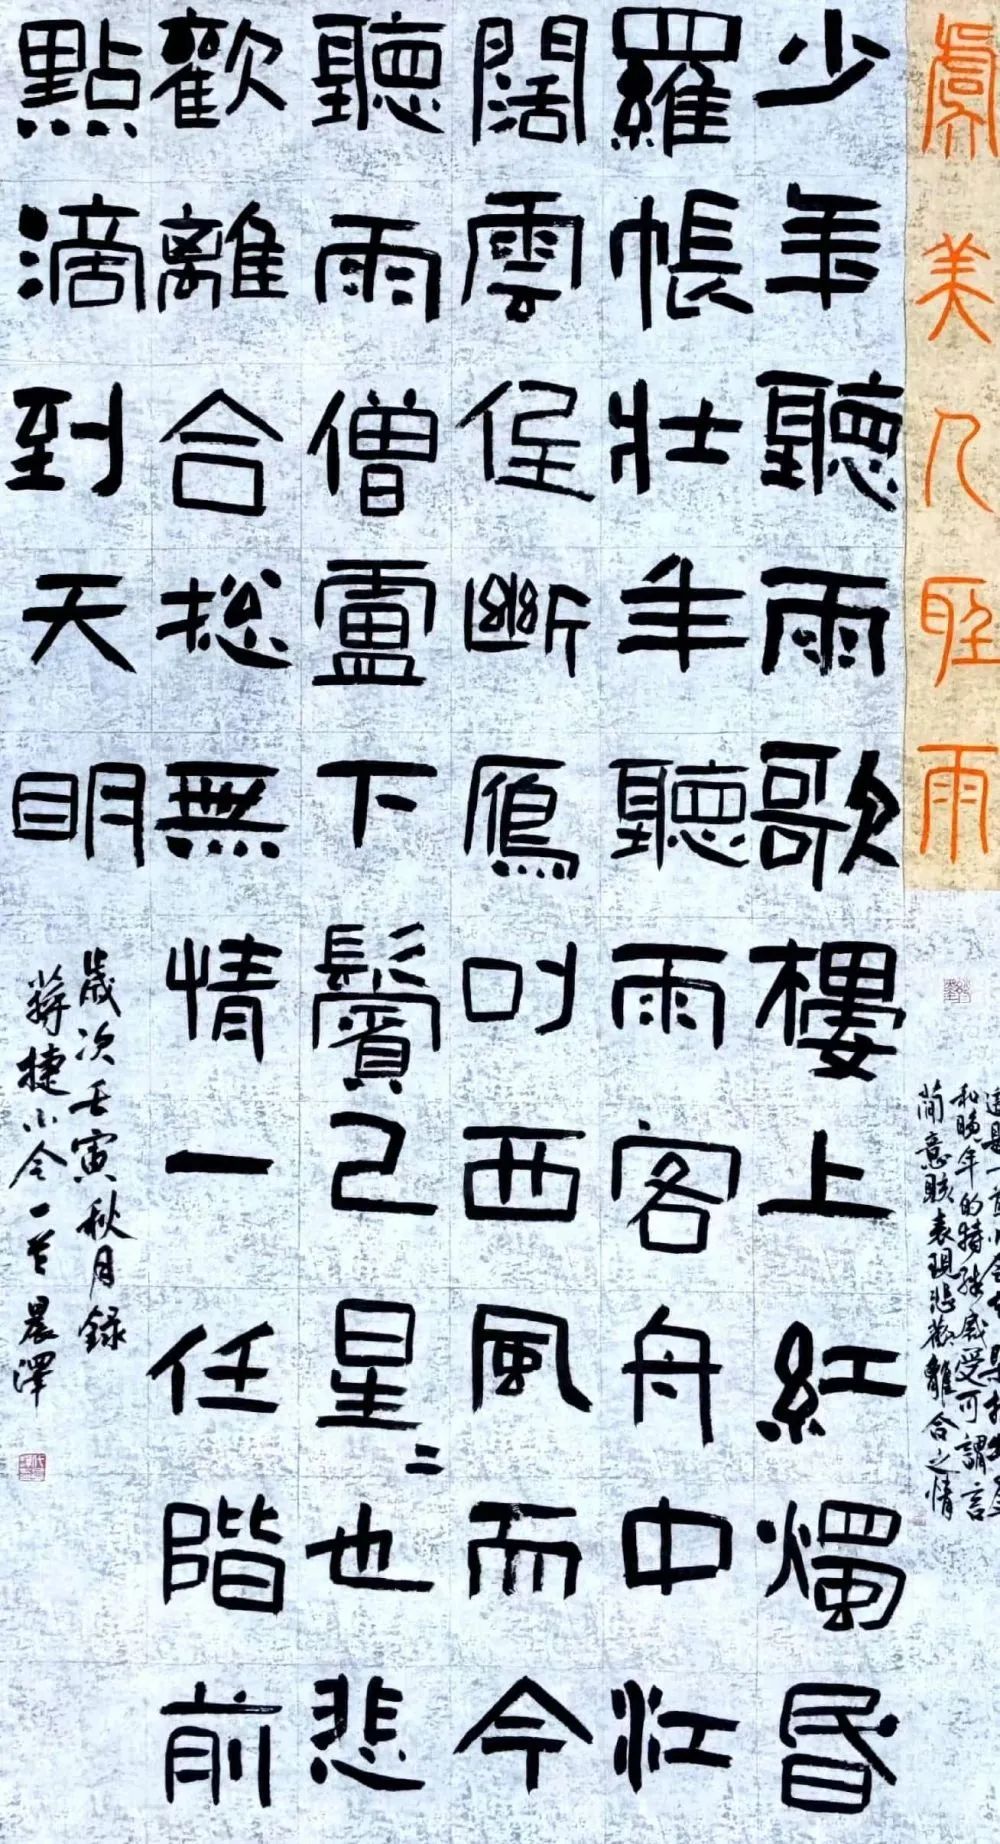 虞美人聽雨
和晚年的特殊感受可謂言
簡意賅表現悲歡離合之情
少年聽雨歌樓上紅燭昏
羅帳壯年聽雨客舟中江
闊雲低斷鴈叫西風而今
聽雨僧盧下鬢已星二也悲
歡離合揔無情一任階前
點滴到天明
歲次壬寅秋月録
蔣捷小令一首晨澤